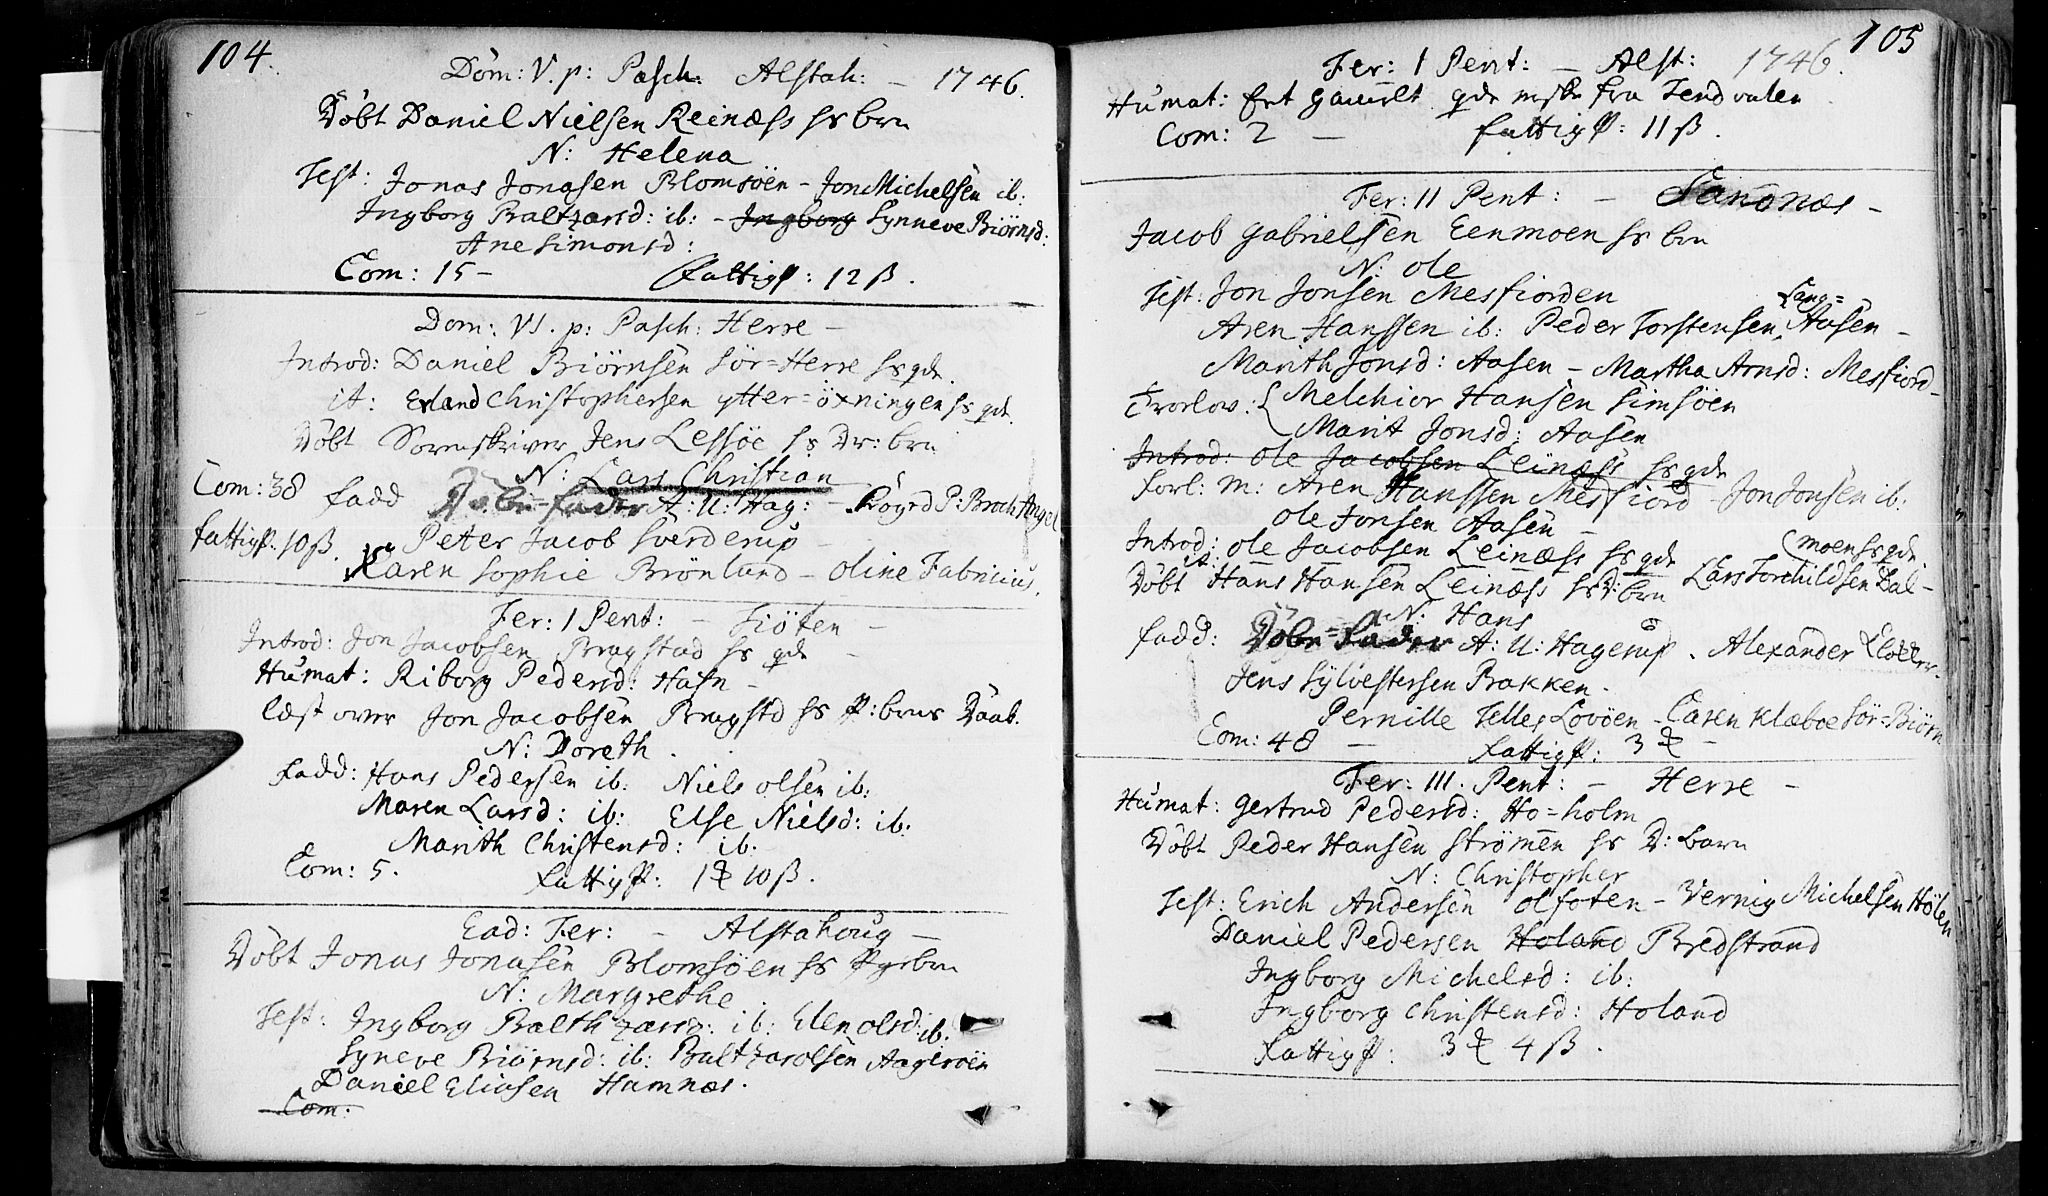 104.
Dom: V. p: Pasch: Alstah: — 1746.
Døbt Daniel Nielsen Reinæss hs brn
N: Helena
Test: Jonas Jonasen Blomsøen – Jon Michelsen ib:
Ingborg Baltzarsd: ib: – Ingborg Synneve Biørnsd:
Ane Simonsd:
Com: 15 – fattigP: 12 ß.
Dom: VI. p: Pasch: Herre –
Introd: Daniel Biørnsen Sør=Herre hs qde.
it: Erland Christophersen ytter=öxningen hs qde.
Døbt Sorenskriver Jens Lessøe hs Dr: brn
N: Lars Christian
Com: 38 fadd A: U: Hag: – P: Broch Angel
fattigP. 10 ß. Peter Jacob Sverderup –
Karen Sophie Brönlund – Oline Fabricius.
Fer: I Pent: – Tiöten –
Introd: Jon Jacobsen Bragstad hs qde –
Humat: Riborg Pedersd: Hafn –
læst over Jon Jacobsen Bragstd hs P: brns Daab.
N: Doreth.
Fadd: Hans Pedersen ib: Niels Olsen ib:
Maren Larsd: ib: Else Nielsd: ib:
Marith Christensd: ib:
Com: 5. fattigP: 1 ₰ 10 ß.
Ead: Fer: – Alstahoug –
Døbt Jonas Jonasen Blomsøen hs Pgebrn
N: Margrethe
Test: Ingborg Balthzarsd: ib: Elen Olsd: ib:
Syneve Biørnsd: ib: Baltzar Olsen
Daniel Eliasen Hamnæs.
Com:
105
Fer: I Pent: – Alst: 1746.
Humat: Ert gamelt qde mske fra Tendvalen
Com: 2 – fattigP: 11 ß.
Fer: II Pent: – Sandnæs –
Jacob Gabrielsen Eenmoen hs brn
N: Ole
Test: Jon Jonsen Mesfiorden
Aren Hanssen ib: Peder Torstensen Lang=Aasen –
Marith Jonsd: Aasen – Martha Arnsd: Mesfiord –
Trorlov: { Melchior Hansen Simsøen
Marit Jonsd: Aasen
Introd: Ole Jacobsen Leinæss hs qde
forl: M: Aren Hanssen Mesfiord – Jon Jonsen ib:
Ole Jonsen Aasen –
Introd: Ole Jacobsen Leinæss hs qde it: Lars Torchildsen Dal-moen hs qde
Døbt Hans Hansen Leinæss hs D: brn
N: Hans
fadd: A: U: Hagerup. Alexander
Jens Sylvestersen Bakken.
Pernille Telles Lovöen – Caren Klæboe Sør=Biørn
Com: 48 – fattigP: 3 ₰ –
Fer: III. Pent: – Herre –
Humat: Gertrud Pedersd: Ho=holm
Døbt Peder Hansen Strömen hs D: barn
N: Christopher
Test: Erich Andersen Olfoten – Vernig Michelsen Hölen
Daniel Pedersen Holand Bredstrand
Ingborg Michelsd: ib:
Ingborg Christensd: Holand
fattigP: 3 ₰ 4 ß.